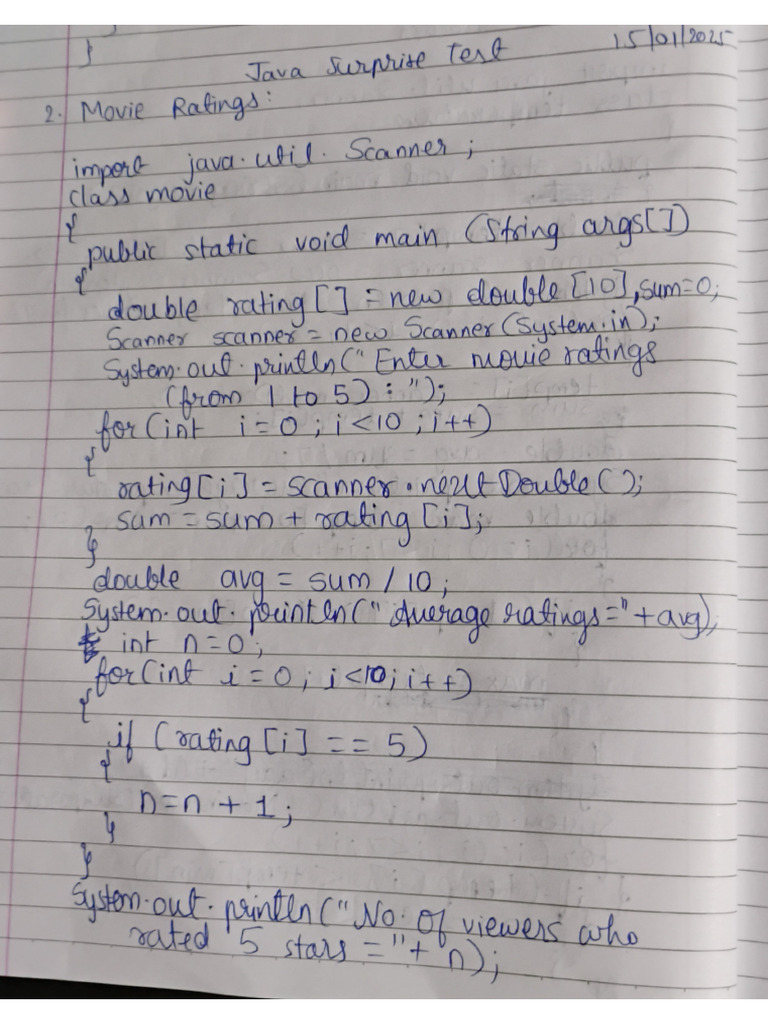 }
Java Surprise Test 15/01/2025
2. Movie Ratings:
import java.util.Scanner;
class movie
{
public static void main (String args[])
{
double rating[] = new double[10], sum=0;
Scanner scanner = new Scanner(System.in);
System.out.println("Enter movie ratings
(from 1 to 5) : ");
for(int i=0; i<10; i++)
{
rating[i] = scanner.nextDouble();
sum = sum + rating[i];
}
double avg = sum / 10;
System.out.println("Average ratings="+avg);
int n=0;
for(int i=0; i<10; i++)
{
if (rating[i] == 5)
{
n=n + 1;
}
}
System.out.println("No. of viewers who
rated 5 stars ="+ n);